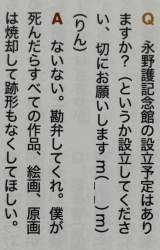 Q 永野護記念館の設立予定はあり
ますか?（というか設立してくださ
い、切にお願いしますm(__)m）
（りん）
A ないない。勘弁してくれ。僕が
死んだらすべての作品、絵画、原画
は焼却して跡形もなくしてほしい。